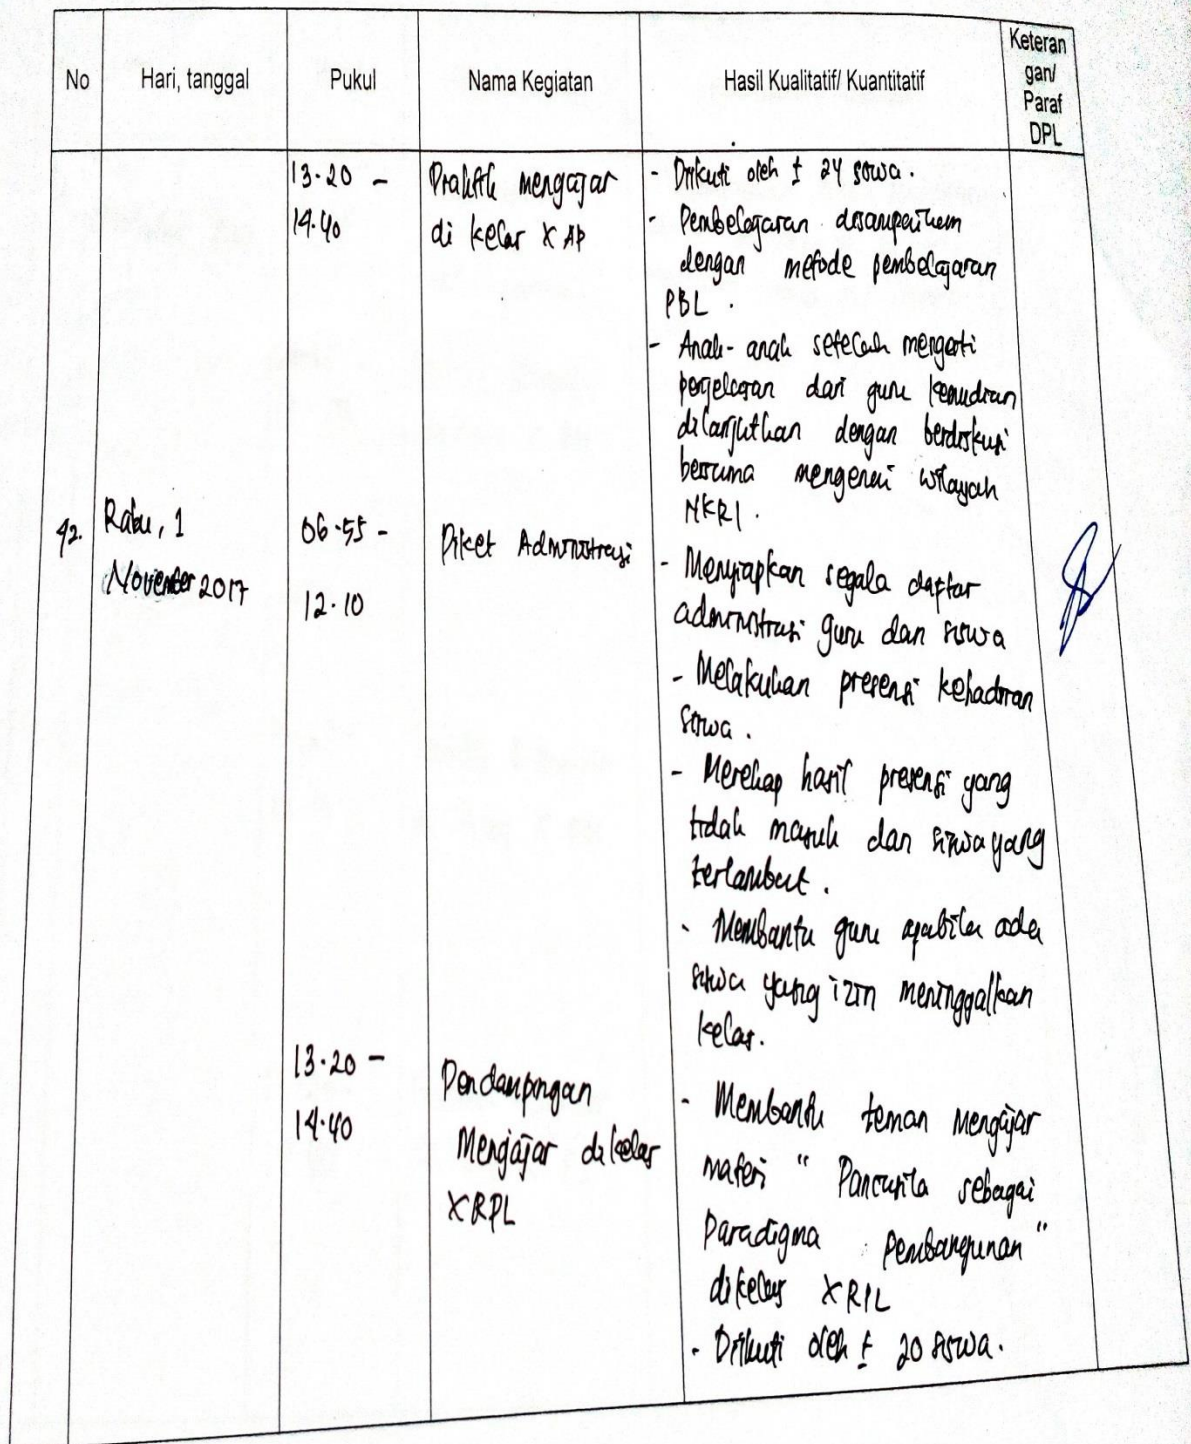 No
Hari, tanggal
Pukul
Nama Kegiatan
Hasil Kualitatif/ Kuantitatif
Keteran
gan/
Paraf
DPL
13.20 -
14.40
Praktik mengajar
di kelas X AP
- Diikuti oleh ± 24 siswa.
- Pembelajaran disampaikan
dengan metode pembelajaran
PBL.
- Anak-anak setelah mengerti
penjelasan dari guru kemudian
dilanjutkan dengan berdiskusi
bersama mengenai wilayah
NKRI.
42.
Rabu, 1
November 2017
06.55 -
12.10
Piket Administrasi
- Menyiapkan segala daftar
administrasi guru dan siswa
- Melakukan presensi kehadiran
siswa.
- Merekap hasil presensi yang
tidak masuk dan siswa yang
terlambat.
- Membantu guru apabila ada
siswa yang izin meninggalkan
kelas.
13.20 -
14.40
Pendampingan
Mengajar di kelas
X RPL
- Membantu teman mengajar
materi " Pancasila sebagai
Paradigma Pembangunan "
dikelas X RPL
- Diikuti oleh ± 20 siswa.